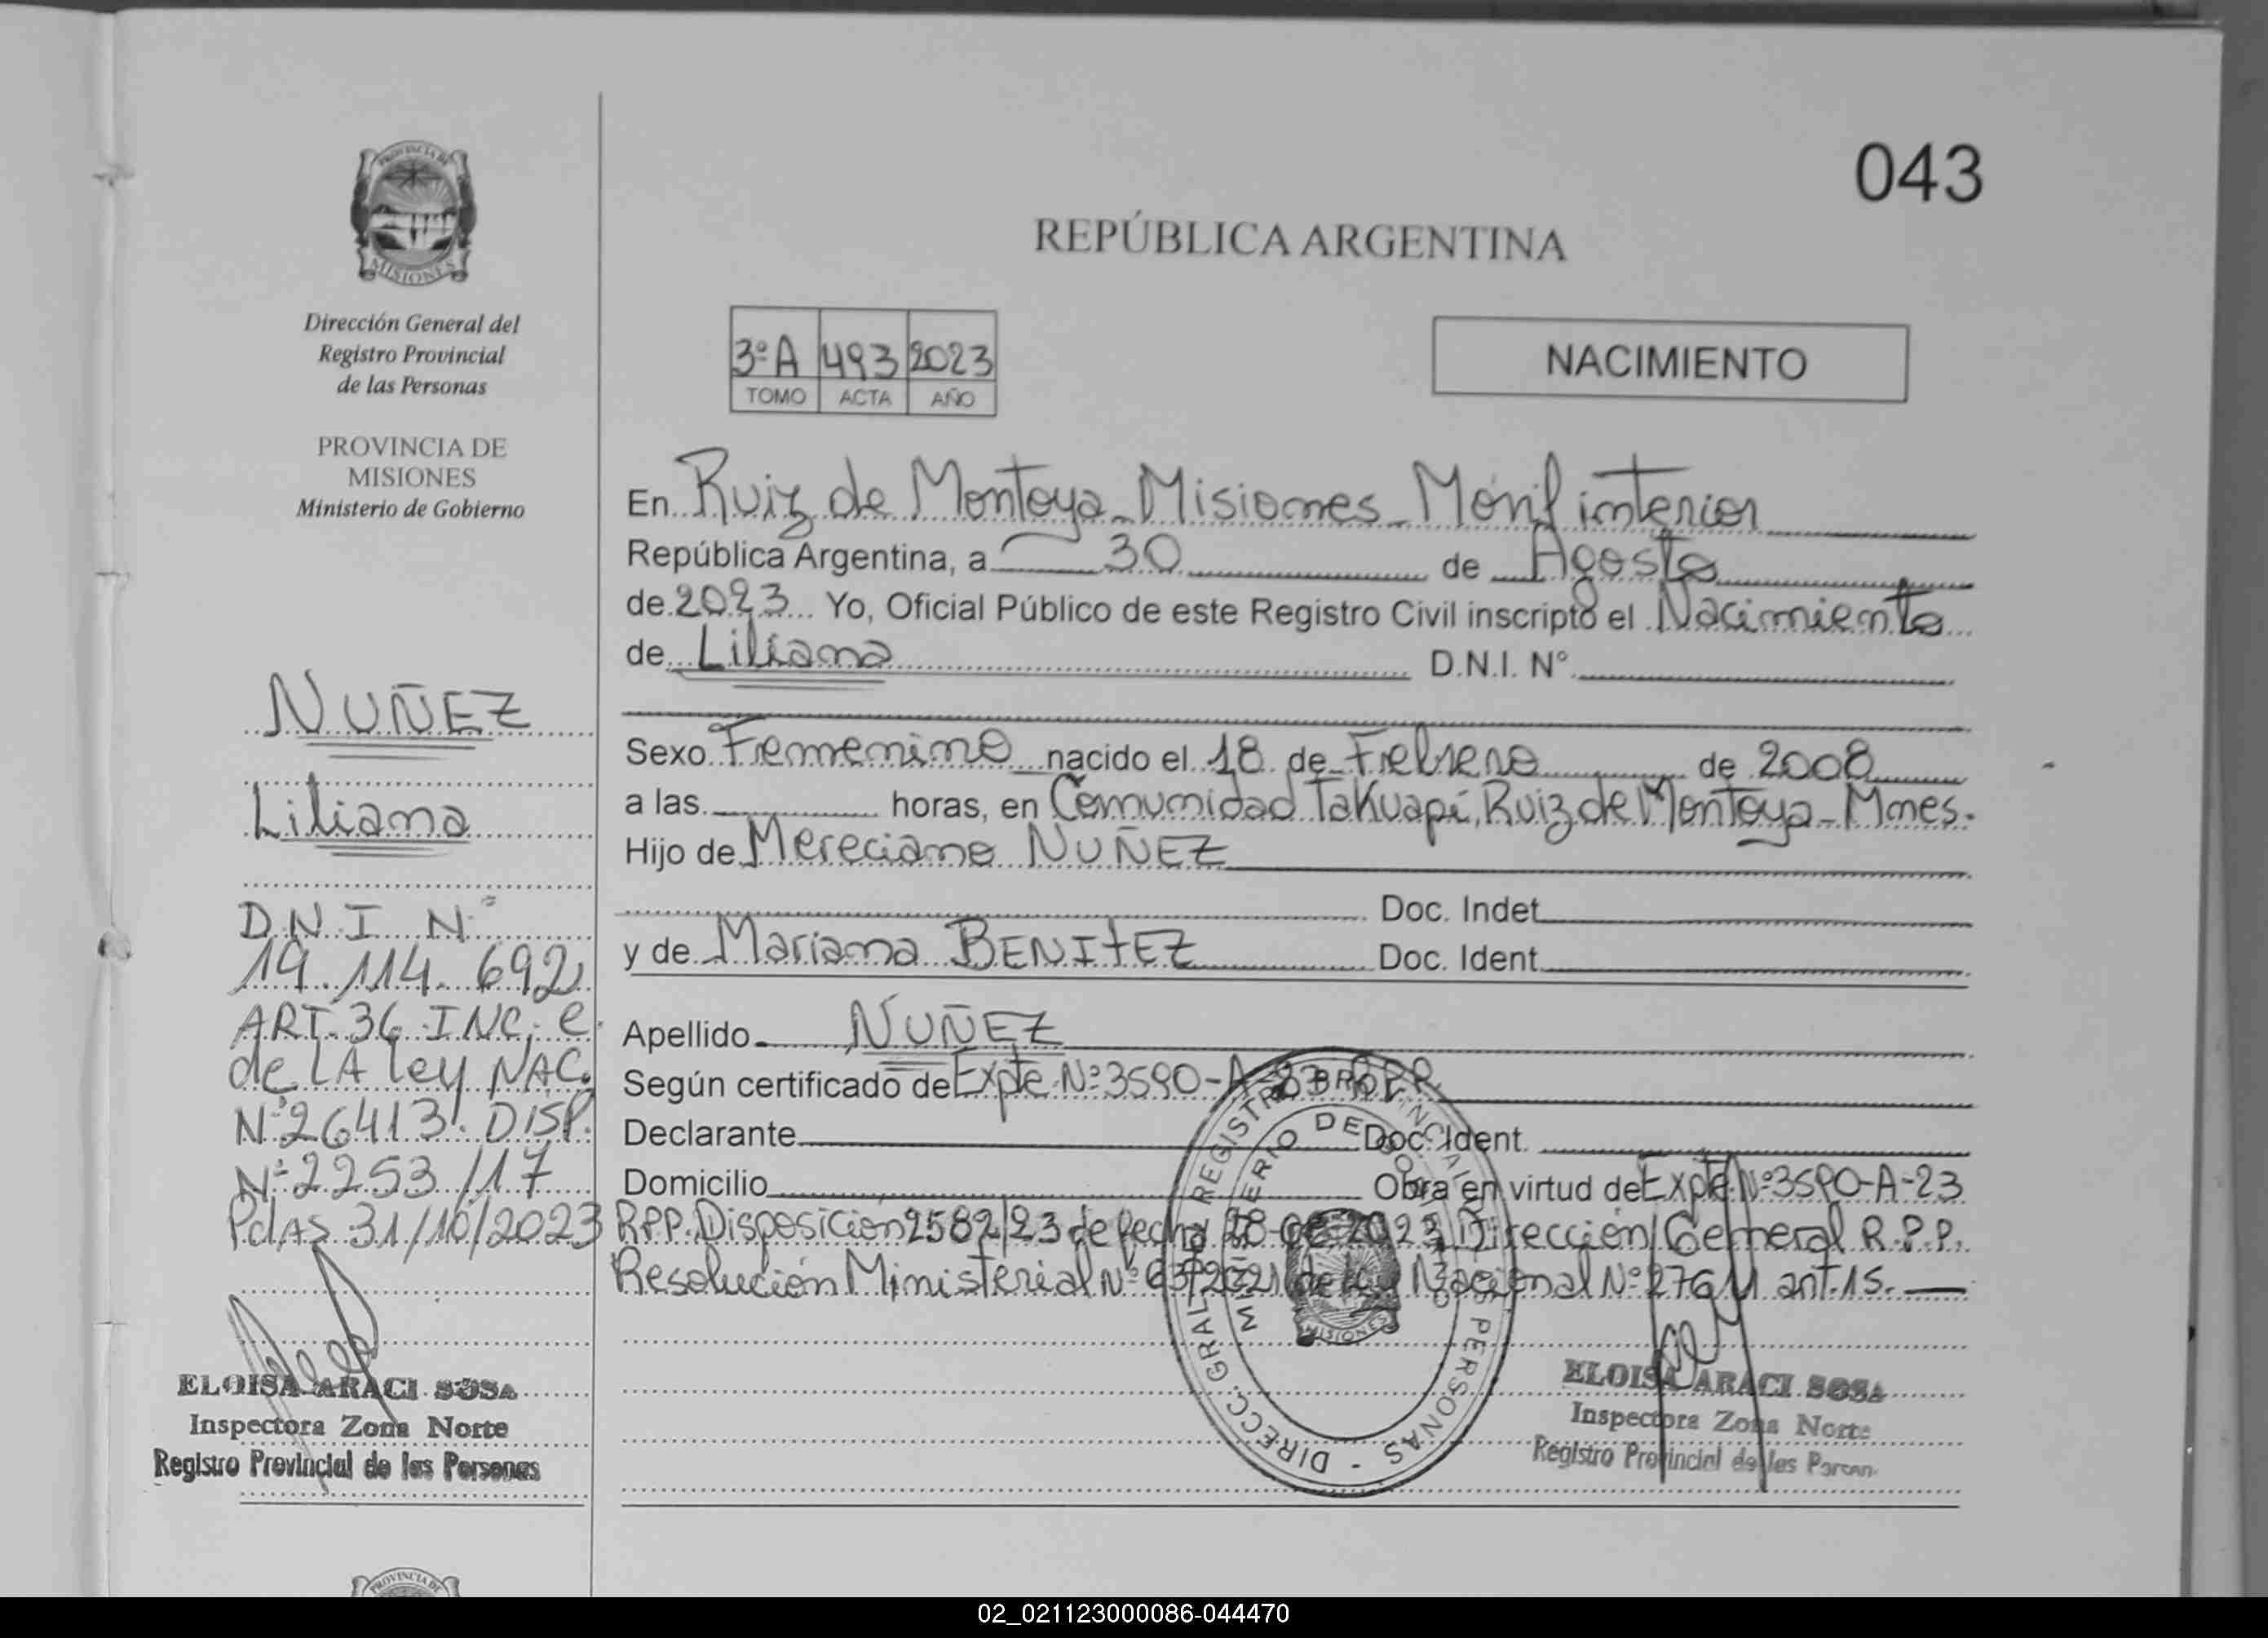 043
PROVINCIA DE
MISIONES
Dirección General del
Registro Provincial
de las Personas
PROVINCIA DE
MISIONES
Ministerio de Gobierno
NUÑEZ
Liliana
D.N.I. Nº
19.114.692
ART. 36 INC. e
de LA ley NAC.
Nº 26413. DISP.
Nº 2253/17
Pdas 31/10/2023
ELOISA ARACI SOSA
Inspectora Zona Norte
Registro Provincial de las Personas
REPÚBLICA ARGENTINA
3º A 493 2023
TOMO ACTA AÑO
NACIMIENTO
En Ruiz de Montoya - Misiones - Móvil interior
República Argentina, a 30 de Agosto
de 2023 Yo, Oficial Público de este Registro Civil inscripto el Nacimiento
de Liliana D.N.I. Nº
Sexo Femenino nacido el 18 de Febrero de 2008
a las horas, en Comunidad Takuapí, Ruiz de Montoya - Mnes.
Hijo de Mereciano NUÑEZ
Doc. Indet
y de Mariana BENITEZ Doc. Ident
Apellido NUÑEZ
Según certificado de Expte Nº 3590-A-23 RPP.
Declarante Doc. Ident.
Domicilio Obra en virtud de Expte Nº 3590-A-23
RPP. Disposición 2582/23 de fecha 2023 Dirección General R.P.P.
Resolución Ministerial Nº 63/2021 de Ley Nacional Nº 27611 art. 15.
DIRECC. GRAL. REGISTRO PROVINCIAL PERSONAS -
MINISTERIO DE GOBIERNO
MISIONES
ELOISA ARACI SOSA
Inspectora Zona Norte
Registro Provincial de las Person
PROVINCIA DE
02_021123000086-044470